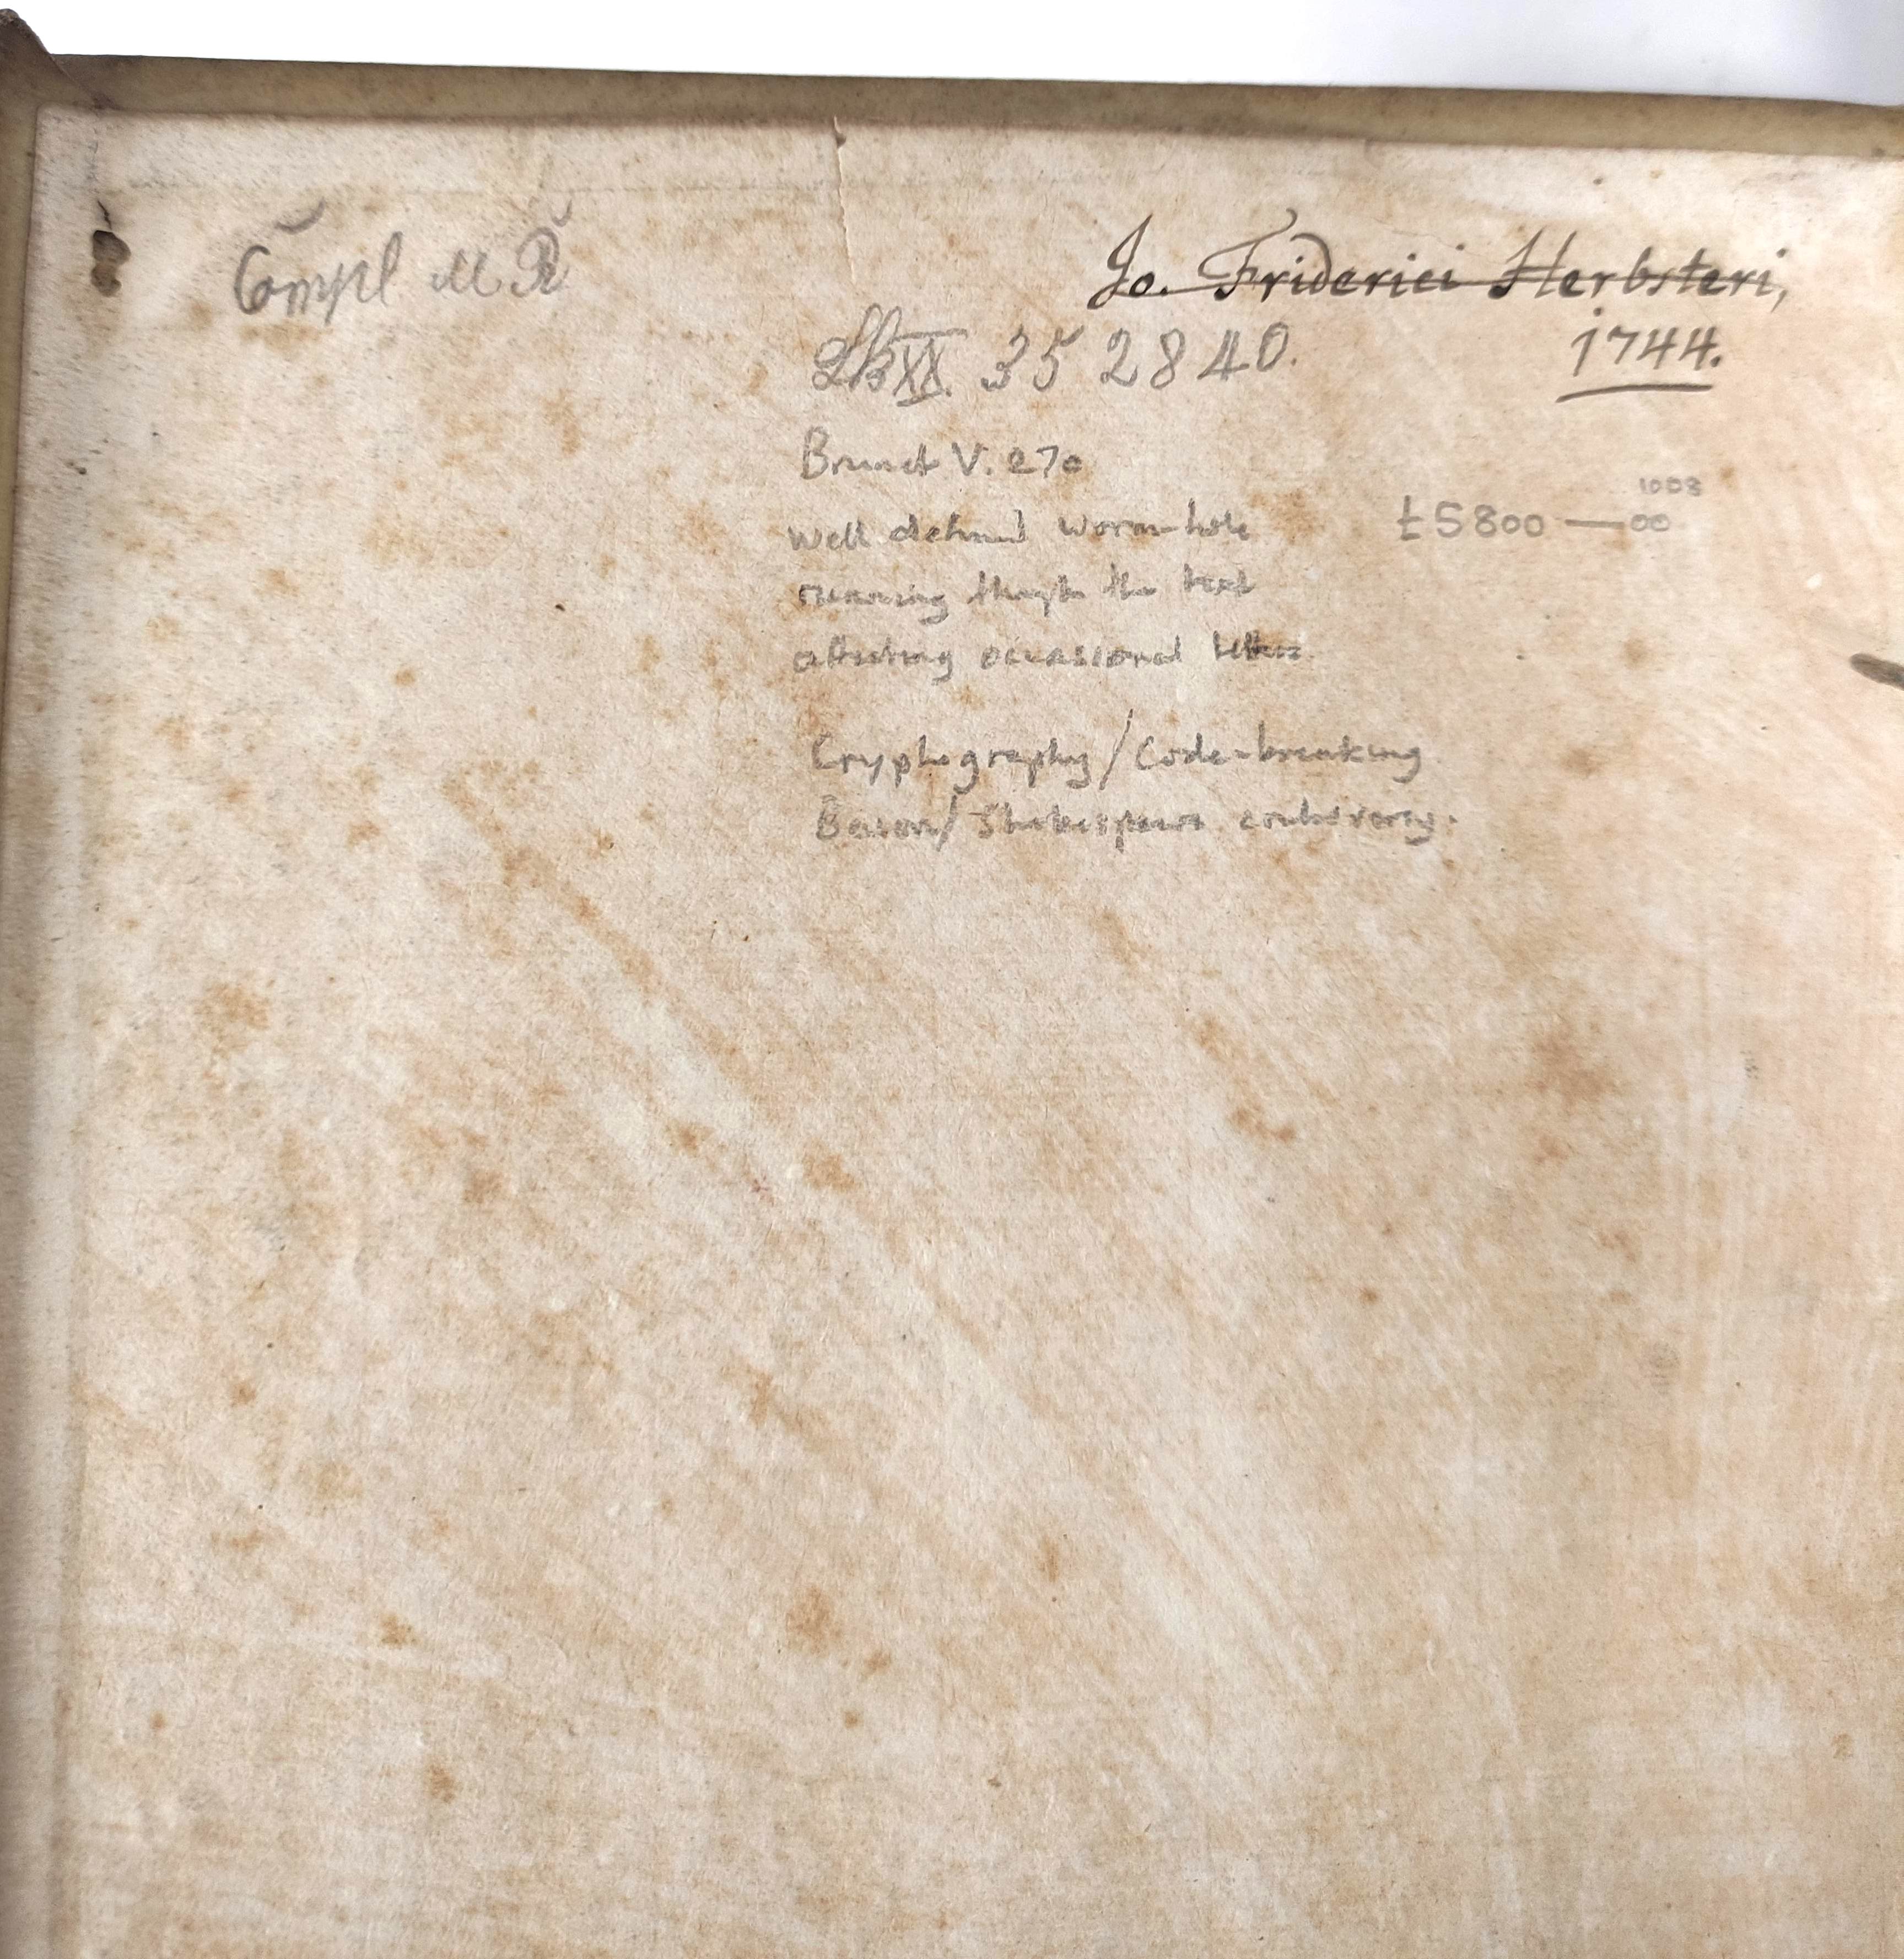 Compl M R
Jo. Friderici Herbsteri,
1744.
XX. 35 2840.
Brunet V. 270
1003
£5800 — 00
Well defined worm-hole
running through the text
affecting occasional letters.
Cryptography / Code-breaking
Bacon / Shakespeare controversy.